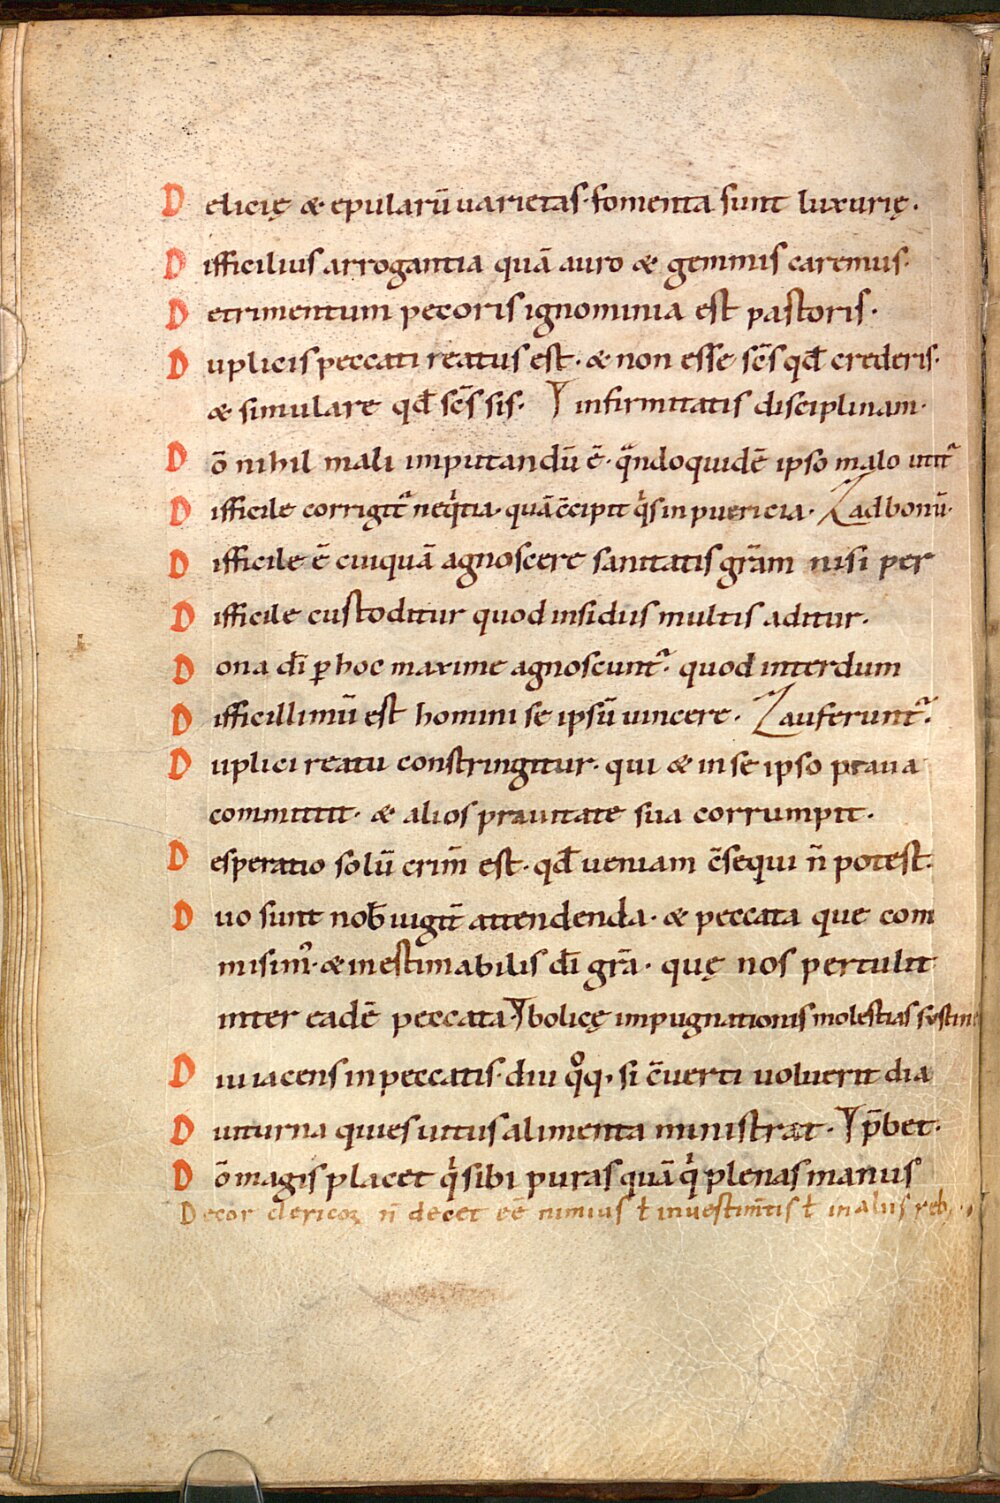 Delicię & epularū uarietas· fomenta sunt luxurię·
Difficilius arrogantia quā auro & gemmis caremus·
Detrimentum pecoris ignominia est pastoris·
Duplicis peccati reatus est· & non esse scs̄ qđ crederis·
& simulare qđ scs̄ sis· infirmitatis disciplinam·
Dō nihil mali imputandū ē· qͣndoquidē ipso malo utit᷑
Difficile corrigit᷑ neqͥtia· quā c̄cipit qͥs in puericia· ad bonū·
Difficile ē cuiquā agnoscere sanitatis gr̄am nisi per
Difficile custoditur quod insidiis multis aditur·
Dona dī ꝑ hoc maxime agnoscunt᷑· quod interdum
Difficillimū est homini se ipsū uincere· auferunt᷑·
Duplici reatu constringitur· qui & in se ipso praua
committit· & alios prauitate sua corrumpit·
Desperatio solū crim̄ est· qđ ueniam c̄sequi n̄ potest·
Duo sunt nob̄ uigit̄ attendenda· & peccata que com
misim᷒· & inestimabilis dī gr̄a· quę nos pertulit
inter eadē peccata· bolicę impugnationis molestias sustine
Diu iacens in peccatis· diu qͦq· si c̄uerti uoluerit dia
Diuturna quies uitiis alimenta ministrat· p̄bet·
Dō magis placet qͥ sibi puras quā qͥ plenas manus
Decor clericoꝝ n̄ decet eē nimius ł in uestim̄tis ł in aliis reb;·